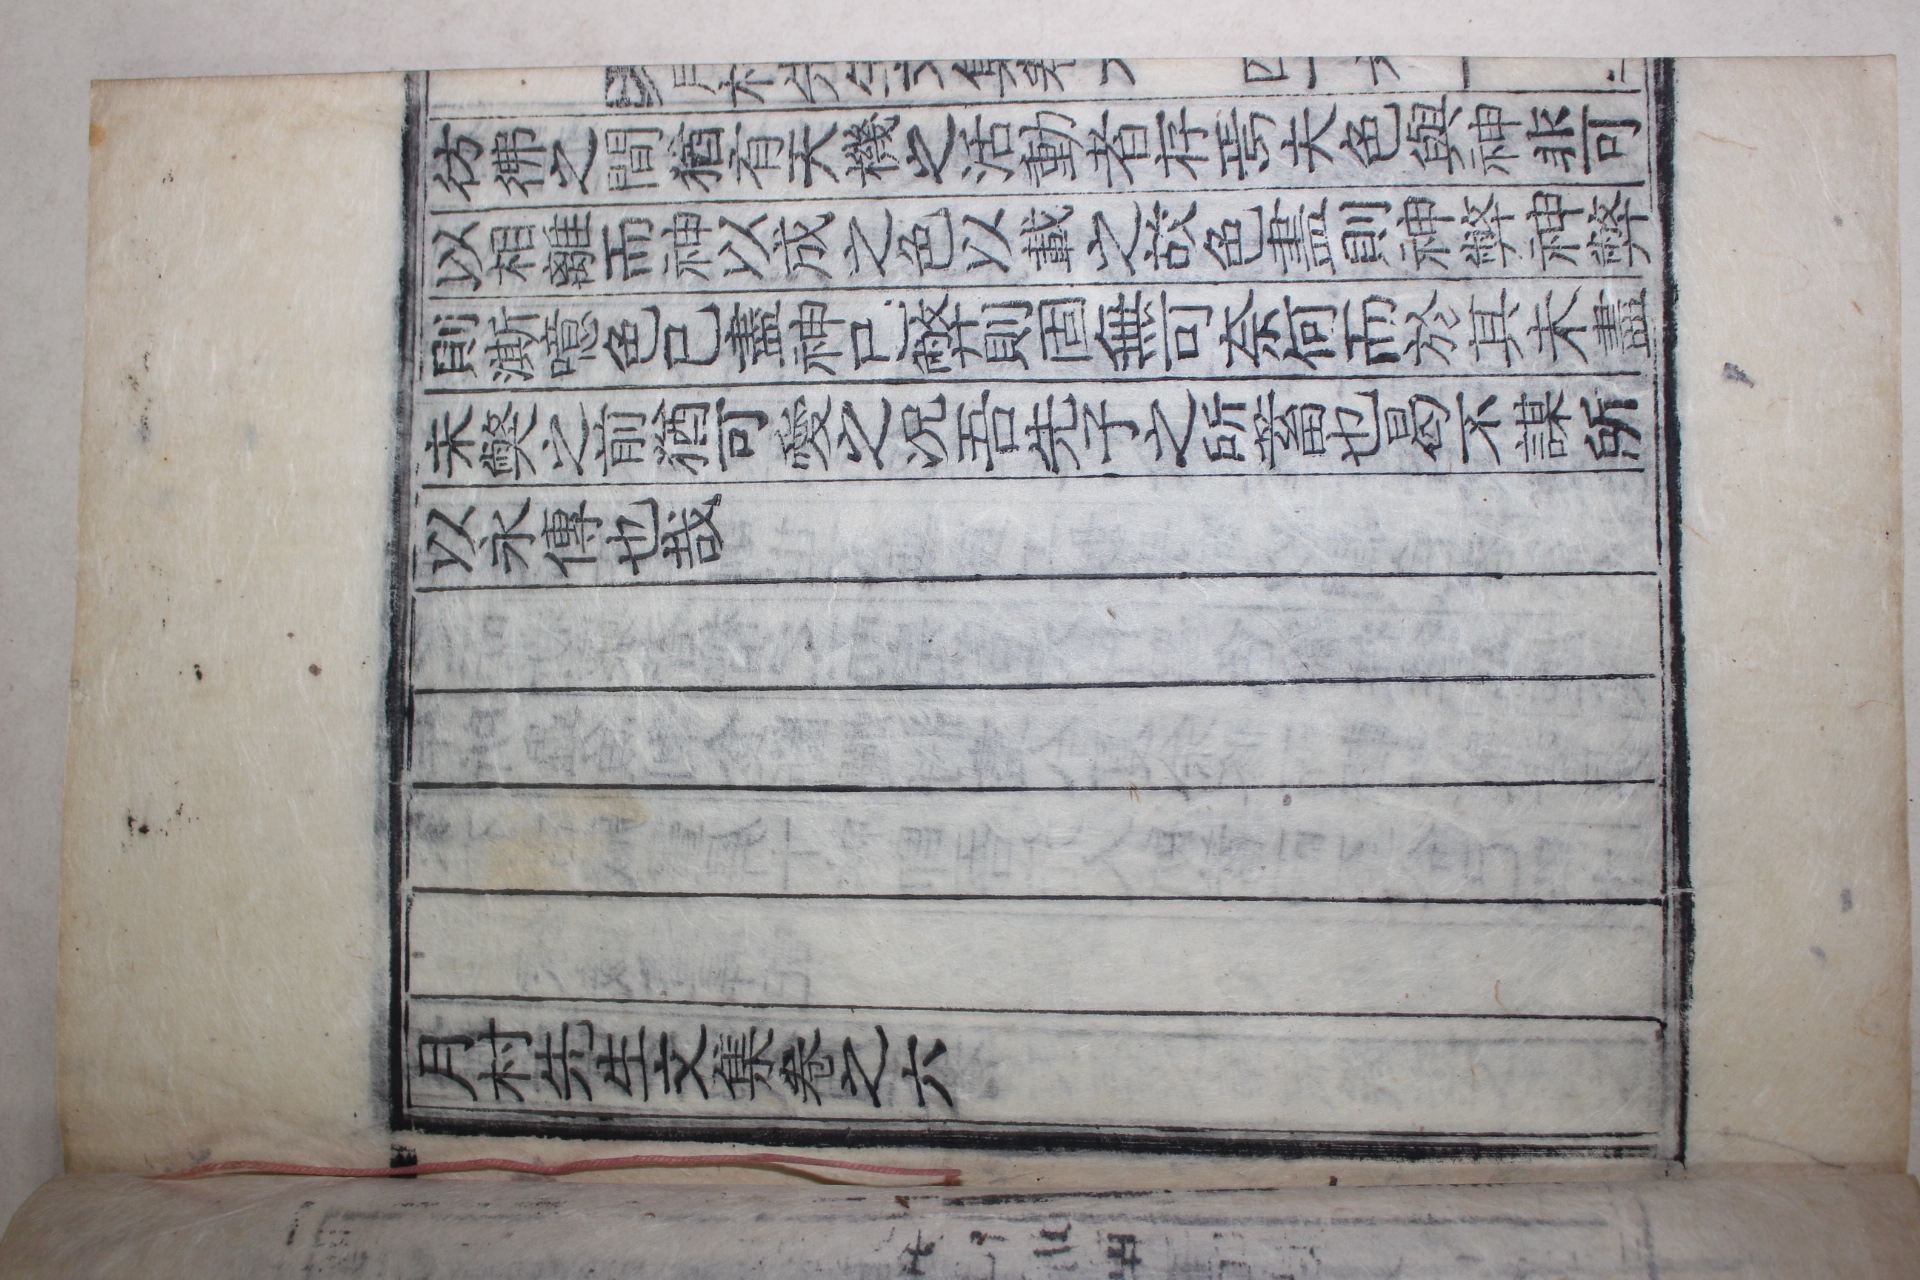 彷彿之間猶有天機之活動者存焉夫色與神非可
以相離而神以成之色以載之故色盡則神弊神弊
則澌噫色已盡神已弊則固無可奈何而於其未盡
未弊之前猶可爱之况吾先子之所啻也曷不謀所
以永傳也哉
月村先生文集卷之六